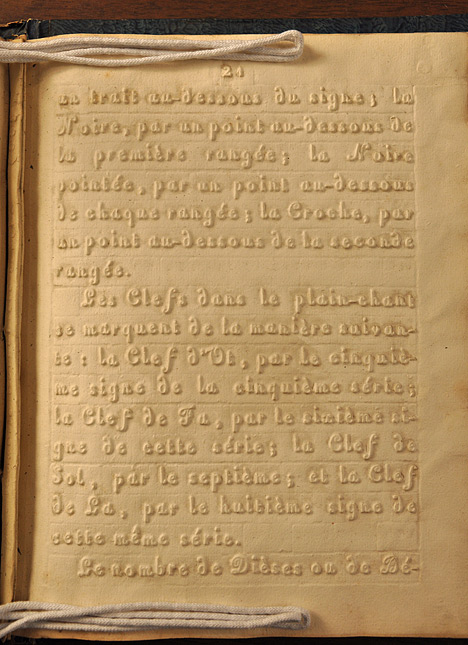 21
un trait au-dessous du signe; la
Noire, par un point au-dessous de
la première rangée; la Noire
pointée, par un point au-dessous
de chaque rangée; la Croche, par
un point au-dessous de la seconde
rangée.
Les Clefs dans le plain-chant
se marquent de la manière suivan-
te: la Clef d'Ut, par le cinquiè-
me signe de la cinquième série;
la Clef de Fa, par le sixième si-
gne de cette série; la Clef de
Sol, par le septième; et la Clef
de La, par le huitième signe de
cette même série.
Le nombre de Dièses ou de Bé-